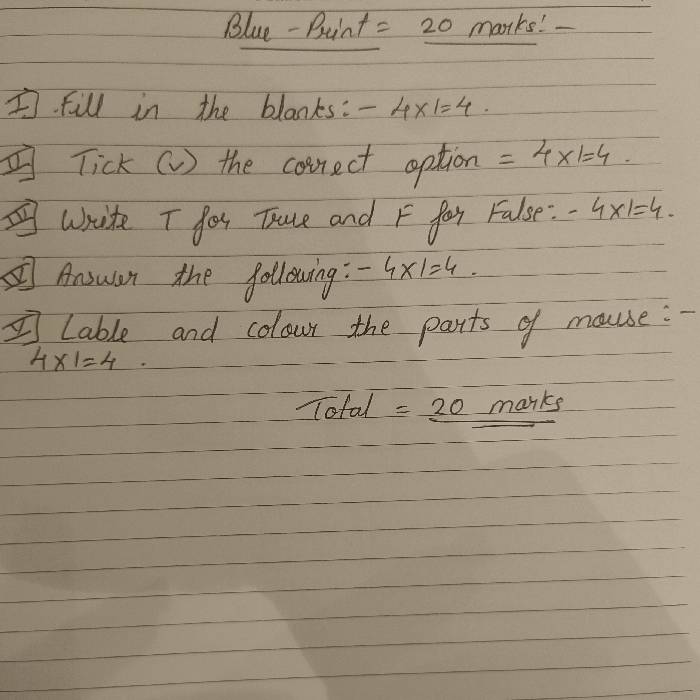 Blue - Print = 20 marks: -
I] Fill in the blanks: - 4x1=4.
II] Tick (v) the correct option = 4x1=4.
III] Write T for True and F for False: - 4x1=4.
IV] Answer the following: - 4x1=4.
V] Lable and colour the parts of mouse: -
4x1=4.
Total = 20 marks